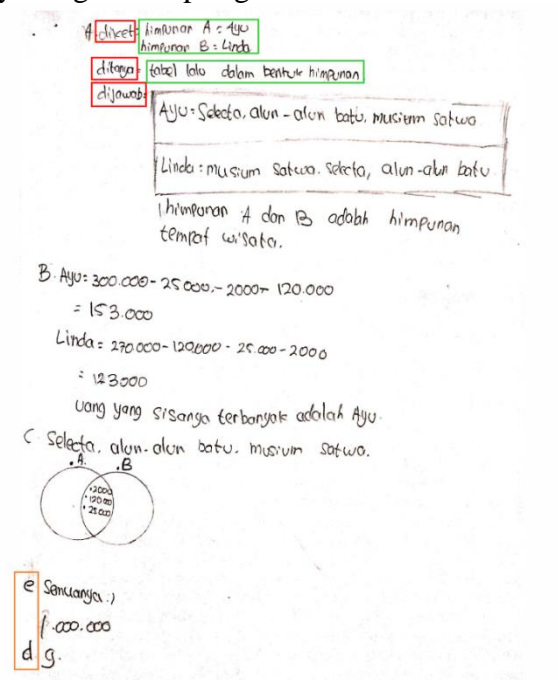 A diket: himpunan A : Ayu
himpunan B : Linda
ditanya: tabel lalu dalam bentuk himpunan
dijawab:
Ayu: Selecta, alun-alun batu, musium satwa
Linda: musium satwa. selecta, alun-alun batu.
himpunan A dan B adalah himpunan
tempat wisata.
B. Ayu: 300.000 - 25000,- 2000- 120.000
= 153.000
Linda = 270.000 - 120.000 - 25.000 - 2000
= 123000
uang yang sisanya terbanyak adalah Ayu.
C. Selecta, alun-alun batu, musium satwa.
.A. .B
.2000
.120000
.25000
e Semuanya :)
1.000.000
d g.